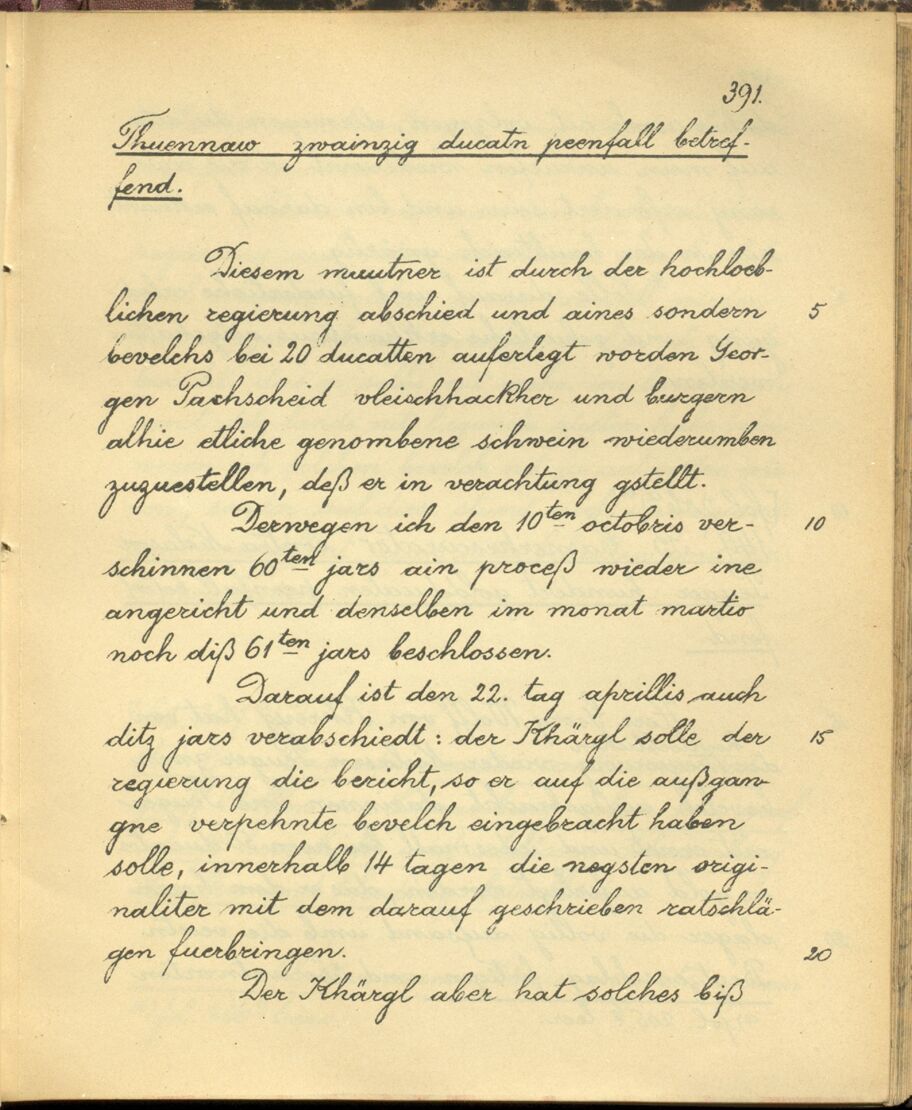 391.
Thuennaw zwainzig ducatn peenfall betref-
fend.
Diesem muutner ist durch der hochloeb-
lichen regierung abschied und aines sondern 5
bevelchs bei 20 ducatten auferlegt worden Geor-
gen Pachscheid vleischhackher und burgern
alhie etliche genombene schwein wiederumben
zuzuestellen, deß er in verachtung gstellt.
Derwegen ich den 10ten octobris ver- 10
schinnen 60ten jars ain proceß wieder ine
angericht und denselben im monat martio
noch diß 61ten jars beschlossen.
Darauf ist den 22. tag aprillis auch
ditz jars verabschiedt: der Khärgl solle der 15
regierung die bericht, so er auf die außgan-
gne verpehnte bevelch eingebracht haben
solle, innerhalb 14 tagen die negsten origi-
naliter mit dem darauf geschrieben ratschlä-
gen fuerbringen. 20
Der Khärgl aber hat solches biß